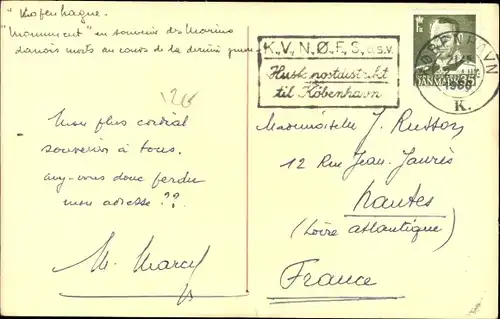 "Kopenhague.
"Monument" en souvenir des Marins
danois morts au cours de la dernière guerre
Mon plus cordial
souvenir à tous.
avez-vous donc perdu
mon adresse ??
M. Marcel
K.V., N.Ø.F.S. o.s.v.
Husk postdistrikt
til København
KØBENHAVN
1960
K.
DANMARK 35
Mademoiselle J. Russon
12 Rue Jean-Jaurès
Nantes
(Loire atlantique)
France